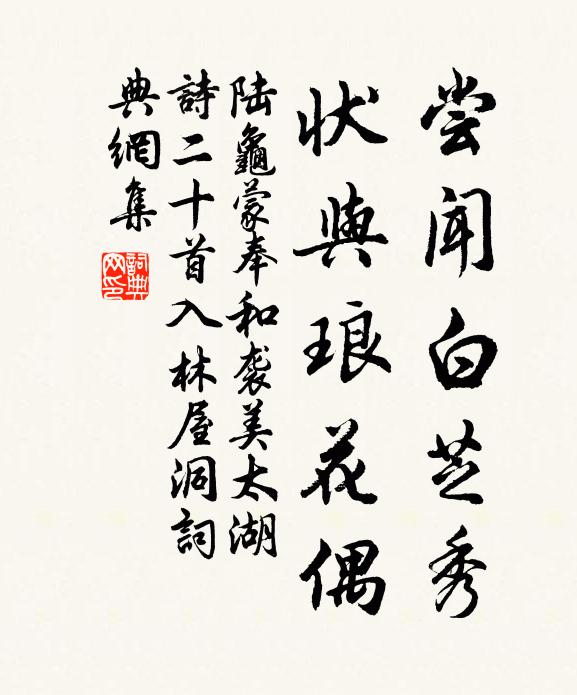 尝闻白芝秀
状與琅花偶
陆龜蒙奉和袭美太湖
詩二十首入林屋洞詞
典網集
詞典网印